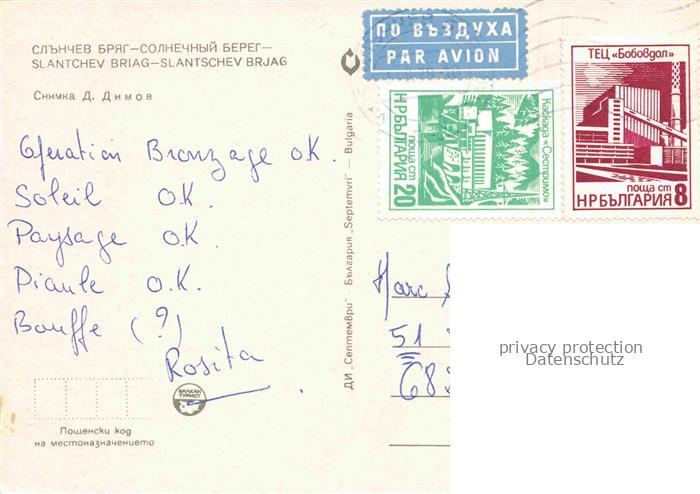 СЛЪНЧЕВ БРЯГ—СОЛНЕЧНЫЙ БЕРЕГ—
SLANTCHEV BRIAG—SLANTSCHEV BRJAG
Снимка Д. Димов
Operation Bronzage o.K.
Soleil O.K.
Paysage O.K.
Piaule O.K.
Bouffe (?)
Rosita
БАЛКАН ТУРИСТ
Пощенски код
на местоназначението
ДИ „Септември" — България „Septemvri" — Bulgaria
ПО ВЪЗДУХА
PAR AVION
Каскада «Сестримо»
поща ст
НРБЪЛГАРИЯ 20
ТЕЦ „Бобовдол"
поща ст
НРБЪЛГАРИЯ 8
Marc
51
68
privacy protection
Datenschutz